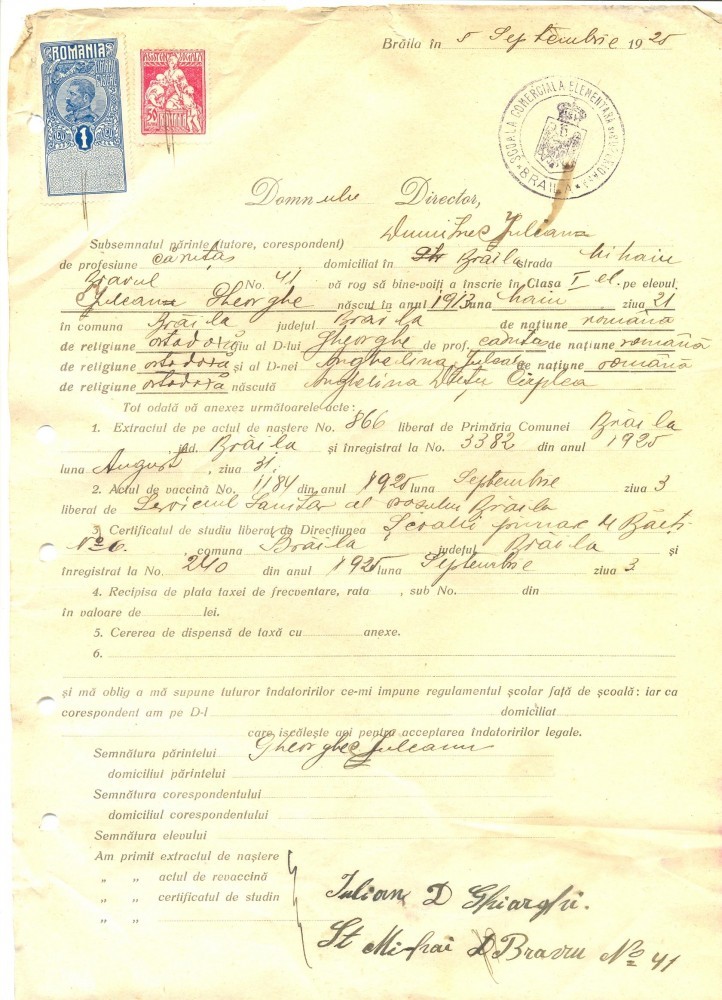 ROMANIA
1
50
ROMANIA
Brăila în 5 Septembrie 1925
ȘCOALA COMERCIALA ELEMENTARA
BRAILA
Domnului Director,
Subsemnatul părinte (tutore, corespondent) Dumitrec Juleanu
de profesiune căruțaș domiciliat în Brăila strada Mihaiu
Bravul No. 41 vă rog să bine-voiți a înscrie în Clasa I el. pe elevul
Juleanu Gheorghe născut în anul 1913 luna maiu ziua 21
în comuna Brăila județul Brăila de națiune română
de religiune ortodoxă fiu al D-lui Gheorghe de prof. căruțaș de națiune română
de religiune ortodoxă și al D-nei Anghelina de națiune română
de religiune ortodoxă născută Anghelina
Tot odată vă anexez următoarele acte:
1. Extractul de pe actul de naștere No. 866 liberat de Primăria Comunei Brăila
jud. Brăila și înregistrat la No. 3382 din anul 1925
luna August, ziua 31.
2. Actul de vaccină No. 1184 din anul 1925 luna Septembrie ziua 3
liberat de Serviciul Sanitar al orașului Brăila
3. Certificatul de studiu liberat de Direcțiunea Școalii primare
No 6. comuna Brăila județul Brăila și
înregistrat la No. 240 din anul 1925 luna Septembrie ziua 3.
4. Recipisa de plata taxei de frecventare, rata , sub No. din
în valoare de lei.
5. Cererea de dispensă de taxă cu anexe.
6.
și mă oblig a mă supune tuturor îndatoririlor ce-mi impune regulamentul școlar față de școală: iar ca
corespondent am pe D-l domiciliat
care iscălește aci pentru acceptarea îndatoririlor legale.
Semnătura părintelui Gheorghe Juleanu
domiciliul părintelui
Semnătura corespondentului
domiciliul corespondentului
Semnătura elevului
Am primit extractul de naștere
„ „ actul de revaccină
„ „ certificatul de studin
„ „
Iulian D Ghiarghi.
St Mihai Bravu No 41